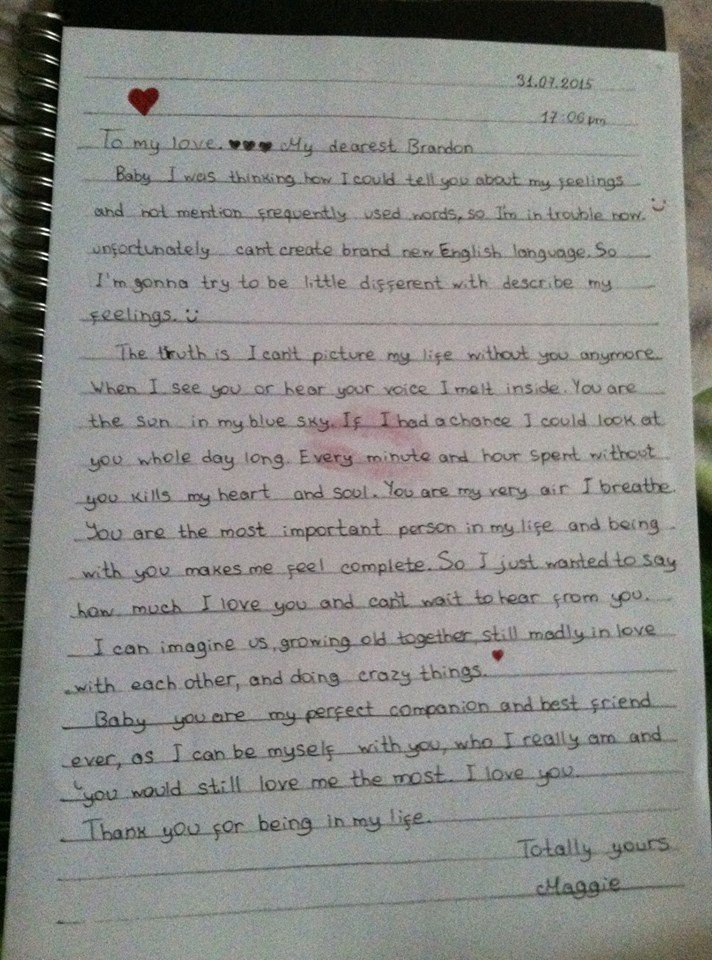 31.07.2015
17:06 pm
To my love. ♥♥♥ My dearest Brandon
Baby I was thinking how I could tell you about my feelings
and not mention frequently used words, so I'm in trouble now.
unfortunately cant create brand new English language. So
I'm gonna try to be little different with describe my
feelings. :)
The truth is I can't picture my life without you anymore.
When I see you or hear your voice I melt inside. You are
the sun in my blue sky. If I had a chance I could look at
you whole day long. Every minute and hour spent without
you kills my heart and soul. You are my very air I breathe.
You are the most important person in my life and being
with you makes me feel complete. So I just wanted to say
how much I love you and can't wait to hear from you.
I can imagine us, growing old together, still madly in love
with each other, and doing crazy things.
Baby you are my perfect companion and best friend
ever, as I can be myself with you, who I really am and
you would still love me the most. I love you.
Thank you for being in my life.
Totally yours
Maggie